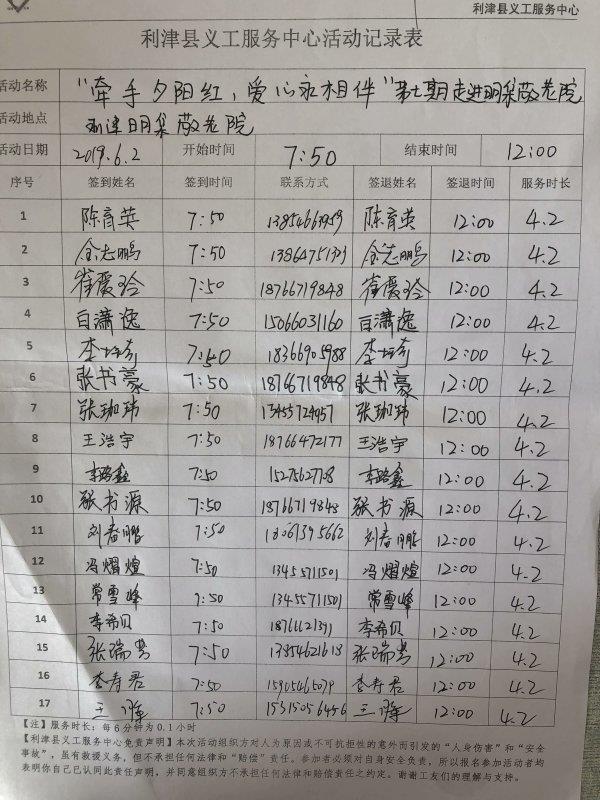 利津县义工服务中心
利津县义工服务中心活动记录表
活动名称 "牵手夕阳红，爱心永相伴"第七期走进明集敬老院
活动地点 利津明集敬老院
活动日期 2019.6.2 开始时间 7:50 结束时间 12:00
序号 签到姓名 签到时间 联系方式 签退姓名 签退时间 服务时长
1 陈育英 7:50 13854663959 陈育英 12:00 4.2
2 志鹏 7:50 志鹏 12:00 4.2
3 崔爱玲 7:50 18766719848 崔爱玲 12:00 4.2
4 白潇逸 7:50 15066031160 白潇逸 12:00 4.2
5 李 7:50 18366905988 李 12:00 4.2
6 张书豪 7:50 18766719848 张书豪 12:00 4.2
7 张珈玮 7:50 13455724957 张珈玮 12:00 4.2
8 王浩宇 7:50 18766472177 王浩宇 12:00 4.2
9 李路鑫 7:50 15275627708 李路鑫 12:00 4.2
10 张书源 7:50 18766719848 张书源 12:00 4.2
11 刘春鹏 7:50 刘春鹏 12:00 4.2
12 冯熠煊 7:50 13455711501 冯熠煊 12:00 4.2
13 常雪峰 7:50 13455711501 常雪峰 12:00 4.2
14 李希贝 7:50 李希贝 12:00 4.2
15 张瑞 7:50 13854621613 张瑞 12:00 4.2
16 李寿君 7:50 15905465079 李寿君 12:00 4.2
17 王 7:50 15315056456 王 12:00 4.2
【注】服务时长：每6分钟为0.1小时
【利津县义工服务中心免责声明】本次活动组织方对人为原因或不可抗拒性的意外而引发的"人身伤害"和"安全
事故"，虽有救援义务，但不承担任何法律和"赔偿"责任。参加者必须对自身安全负责，所以报名参加活动者均
表明你自己已认同此责任声明，并同意组织方不承担任何法律和赔偿责任之约定。谢谢工友们的理解与支持。